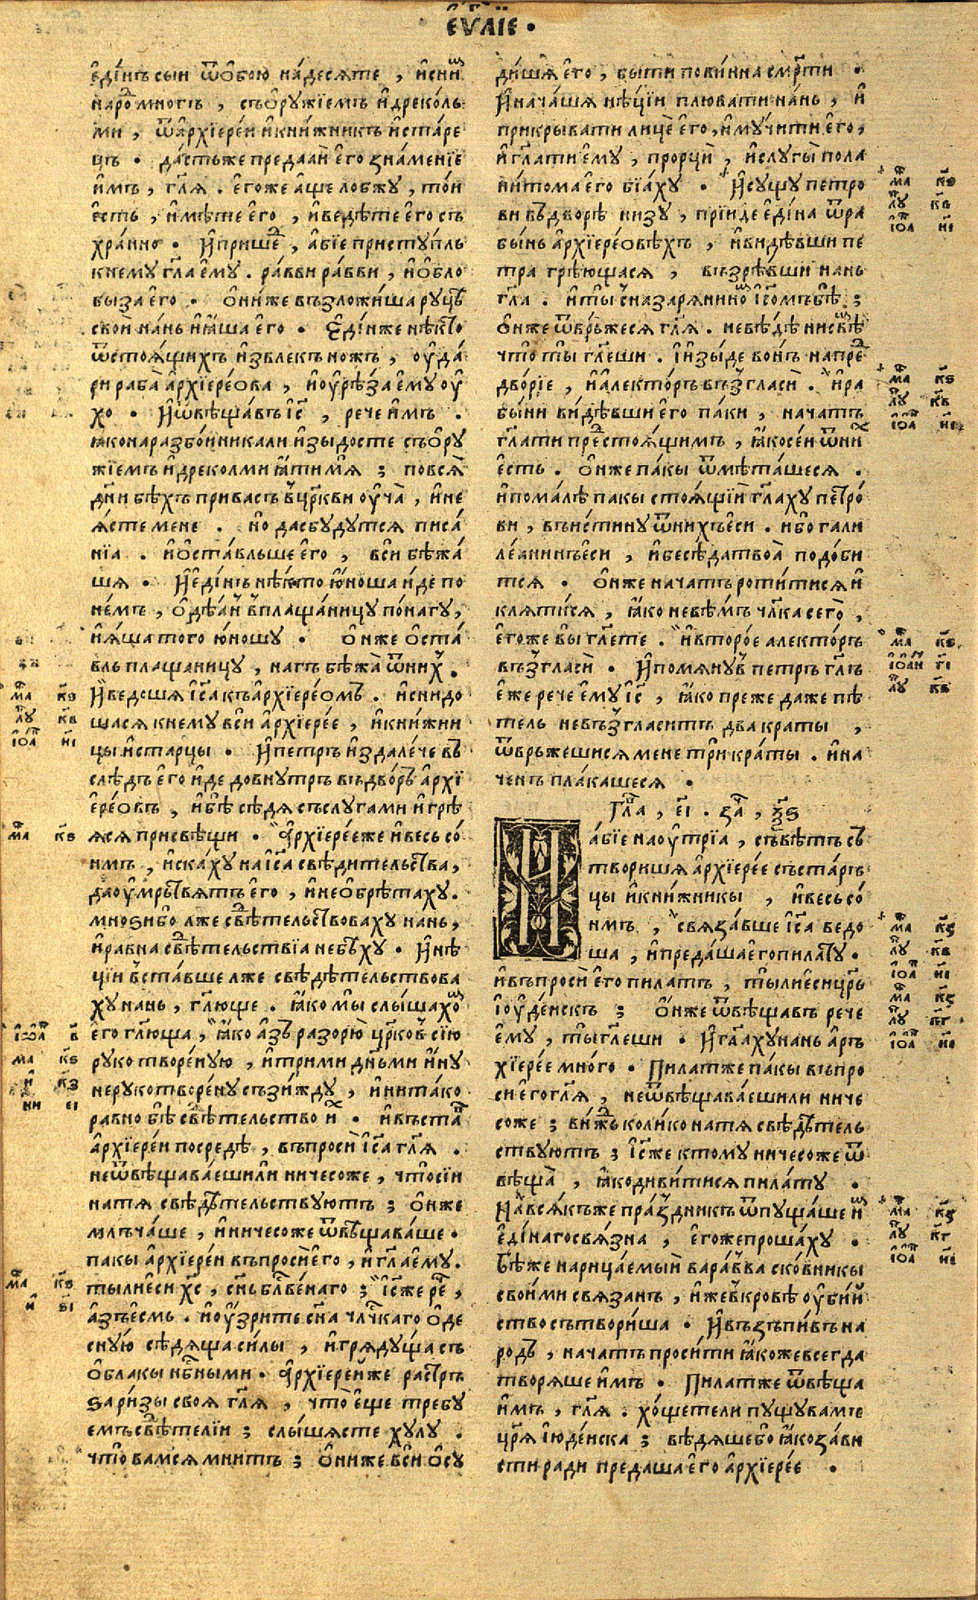 є҆ѵⷢ҇лїе ·
є҆ді́нъ сы́и ѿ ѻ҆бою на́десѧте , и҆сни́ⷨ
наро́ⷣ мно́гъ , съѻ҆рꙋ́жїемъ и҆дреколь
ми , ѿа҆рхїере́и и҆кни́жникъ и҆ста́ре
цъ · да́стьже предаа́и е҆го зна́менїе
и҆мъ , гл҃ѧ . е҆го́же а҆ще лобжꙋ , то́и
е҆сть , и҆мѣ́те е҆го , и҆веде́те е҆го съ
хра́нно · и҆прише́ⷣ , а҆бїе пристꙋ́пль
кнемꙋ гл҃а е҆мꙋ . ра́вви ра́вви , и҆ѻ҆бло
быза е҆го · ѻ҆ни́же възложи́ша рꙋцѣ̀
свои́ на́нь и҆ꙗ҆́ша е҆го · є҆ди́нже нѣ́кⷮо
ѿстоѧ́щихъ и҆звлекъ но́жъ , оу҆да́
ри раба̀ а҆рхїере́ова , и҆оу҆рѣ́за е҆мꙋ оу҆́
хо · и҆ѿвѣща́въ і҆с҃ , рече и҆мъ .
ꙗ҆конаразбо́иникали и҆зыдосте съѻ҆рꙋ
жїемъ и҆дреколми ꙗ҆́ти мѧ̀ ; повсѧ̀
дн҃и бѣ́хъ при васъ в̾цр҃кви оу҆чѧ̀ , и҆не
ꙗ҆́сте мене . но дасбꙋ́дꙋтсѧ писа́
нїа . и҆ѻ҆ста́вльше е҆го , вси бѣжа́
шѧ · и҆є҆ди́нъ нѣ́кто ю҆́ноша и҆́де по
не́мъ , ѻ҆дѣа́н̾ в̾плаща́ницꙋ по́нагꙋ ,
и҆ꙗ҆ша того ю҆́ношꙋ · ѻ҆нже ѻ҆ста́
вль плащаницꙋ , нагъ бѣжа̀ ѿни́ⷯ .
и҆ведошѧ і҆с҃а къ а҆рхїере́омъ . и҆снидо
шасѧ кнемꙋ вси а҆рхїере́е , и҆кни́жни
цы и҆ста́рцы · и҆петръ и҆здале́че въ
слѣ́дъ е҆го и҆де довнꙋтрь въдво́ръ а҆рхї
е҆ре́овъ , и҆бѣ̀ сѣдѧ̀ сълꙋга́ми и҆грѣ́
ѧсѧ присвѣ́щи · а҆рхїере́еже и҆весь со́
имъ , и҆ска́хꙋ наі҆с҃а свѣди́тельства ,
даоу҆мрⷮ҇вѧтъ е҆го , и҆неѻ҆брѣта́хꙋ .
мноѕибо лже свѣ́тельствовахꙋ нань ,
и҆ра́вна свѣ́тельствїа небѣ́хꙋ · и҆нѣ́
цїи в̾ста́вше лже свѣдѣ́тельствова
хꙋ нань , гл҃юще . ꙗ҆́ко мы́ слы́шахоⷨ
е҆го гл҃юща , ꙗ҆́ко а҆зъ разорю̀ цр҃ковь сїю
рꙋкотворе́нꙋю , и҆трими дн҃ьми и҆́нꙋ
нерꙋкотворе́нꙋ съзи́ждꙋ , и҆нитако
равно бѣ̀ свѣ́тельство и҆ⷯ · и҆въста́ⷡ
а҆рхїере́и посредѣ̀ , въпросѝ і҆с҃а гл҃ѧ .
неѿвѣщава́ешили ничесоже , что̀сїи
натѧ̀ свѣдѣ́тельствꙋютъ ; ѻ҆нже
млъча́ше , и҆ничесоже ѿвѣщава́ше ·
пакы а҆рхїере́и въпросѝ е҆го , и҆гл҃а е҆мꙋ .
ты́лиеси хс҃ , сн҃ъ бл҃ве́наго ; і҆с҃же ре́ⷱ ,
а҆зъ е҆смь . и҆оу҆́зрите сн҃а чл҃чкаго ѻ҆́де
снꙋ́ю сѣдѧ́ща си́лы , и҆грѧдꙋ́ща съ
ѻ҆́блакы нбⷭ҇ными . а҆рхїере́иже растръ
ѕа ри́зы своѧ гл҃ѧ , что̀ е҆ще тре́бꙋ
емъ свѣ́тели ; слы́шѧсте хꙋлꙋ .
что̀ вамсѧ мнитъ ; ѻ҆ни́же вси ѻ҆сꙋ
ди́шѧ е҆го , бы́ти пови́нна смр҃ти ·
и҆нача́шѧ нѣ́цїи плюва́ти на́нь , и҆
прикрыва́ти лице е҆го , и҆мꙋ́чити е҆го ,
и҆гл҃ати е҆мꙋ , прорцѝ , и҆слꙋгы̀ пола
ни́тома е҆го бїа́хꙋ · и҆сꙋщꙋ петро
ви въдворѣ̀ низꙋ , прїи́де е҆ди́на ѿра
бы́нь а҆рхїере́овѣхъ , и҆ви́дѣвши пе
тра грѣ́ющасѧ , възрѣ́вши нань
гл҃а . и҆ты̀ сназарѧни́номъ і҆с҃омъ бѣ̀ ;
ѻ҆нже ѿвръ́жесѧ гл҃ѧ . невѣ́дѣ нисвѣ́мъ
что̀ ты̀ гл҃еши . и҆и҆зы́де во́нъ напре́ⷣ
дво́рїе , и҆а҆лекто́ръ възгласѝ . и҆ра
бы́ни ви́дѣвши е҆го па́ки , начатъ
гл҃ати предстоѧ́щимъ , ꙗ҆́ко се́и ѿни́ⷯ
е҆сть . ѻ҆нже пакы ѿмѣта́шесѧ .
и҆пома́лѣ пакы стоѧ́щїи гл҃ахꙋ петро́
ви , въи҆стинꙋ ѿнихъ е҆сѝ . и҆бо гали
ле́анинъ е҆сѝ , и҆бесѣ́датвоа̀ подо́би
тсѧ · ѻ҆нже начатъ роти́тисѧ и҆
клѧти́сѧ , ꙗ҆́ко невѣ́мъ чл҃ка сего̀ ,
е҆го́же вы гл҃ете . и҆второе а҆лекто́ръ
възгласѝ . и҆помѧнꙋ̀в петръ гл҃ъ
е҆же рече е҆мꙋ і҆с҃ , ꙗ҆́ко преже даже пѣ
тель невъзгласитъ два краты ,
ѿвръжешисѧ мене три́ кра́ты . и҆на
че́нъ пла́кашесѧ ·
гл҃а , е҃і . за҃ , ѯ҃ѕ
И҆ а́бїе наоу҆́трїа , съвѣ́тъ съ
твори́ша а҆рхїере́е съста́ръ
цы и҆кни́жникы , и҆весь со́
нмъ , свѧза́вше і҆с҃а ведо
ша , и҆преда́ша е҆го пила́тꙋ .
и҆въпросѝ е҆го пила́тъ , ты́лиеси цр҃ь
і҆оу҆де́искъ ; ѻ҆нже ѿвѣща́въ рече
е҆мꙋ , ты̀ гл҃еши · и҆гл҃ахꙋ нань а҆рь
хїере́е мно́го · пила́тже па́кы въпро
сѝ е҆го гл҃ѧ , неѿвѣщава́ешили ниче
соже ; ви́жь коли́ко натѧ свѣдѣ́тель
ствꙋютъ ; і҆с҃же ктомꙋ ничесоже ѿ
вѣща̀ , ꙗ҆́кодиви́тисѧ пила́тꙋ ·
на̀всѧкъже пра́здникъ ѿпꙋща́ше и҆ⷨ
е҆ди́наго свѧ́зна , е҆гожепроша́хꙋ .
бѣ́же нарица́емый вара́вва ско́вникы
свои́ми свѧ́занъ , и҆же в̾кровѐ оу҆бі́й
ство сътвори́ша · и҆възъпи́въ на
ро́дъ , начатъ проси́ти ꙗ҆́коже всегда
творѧ́ше и҆мъ · пила́тже ѿвѣща
и҆мъ , гл҃ѧ . хо́щетели пꙋщꙋ ва́мъ
цр҃ѧ і҆юде́иска ; вѣ́дѧшебо ꙗ҆́ко за́ви
сти ради предаша е҆го а҆рхїере́е ·